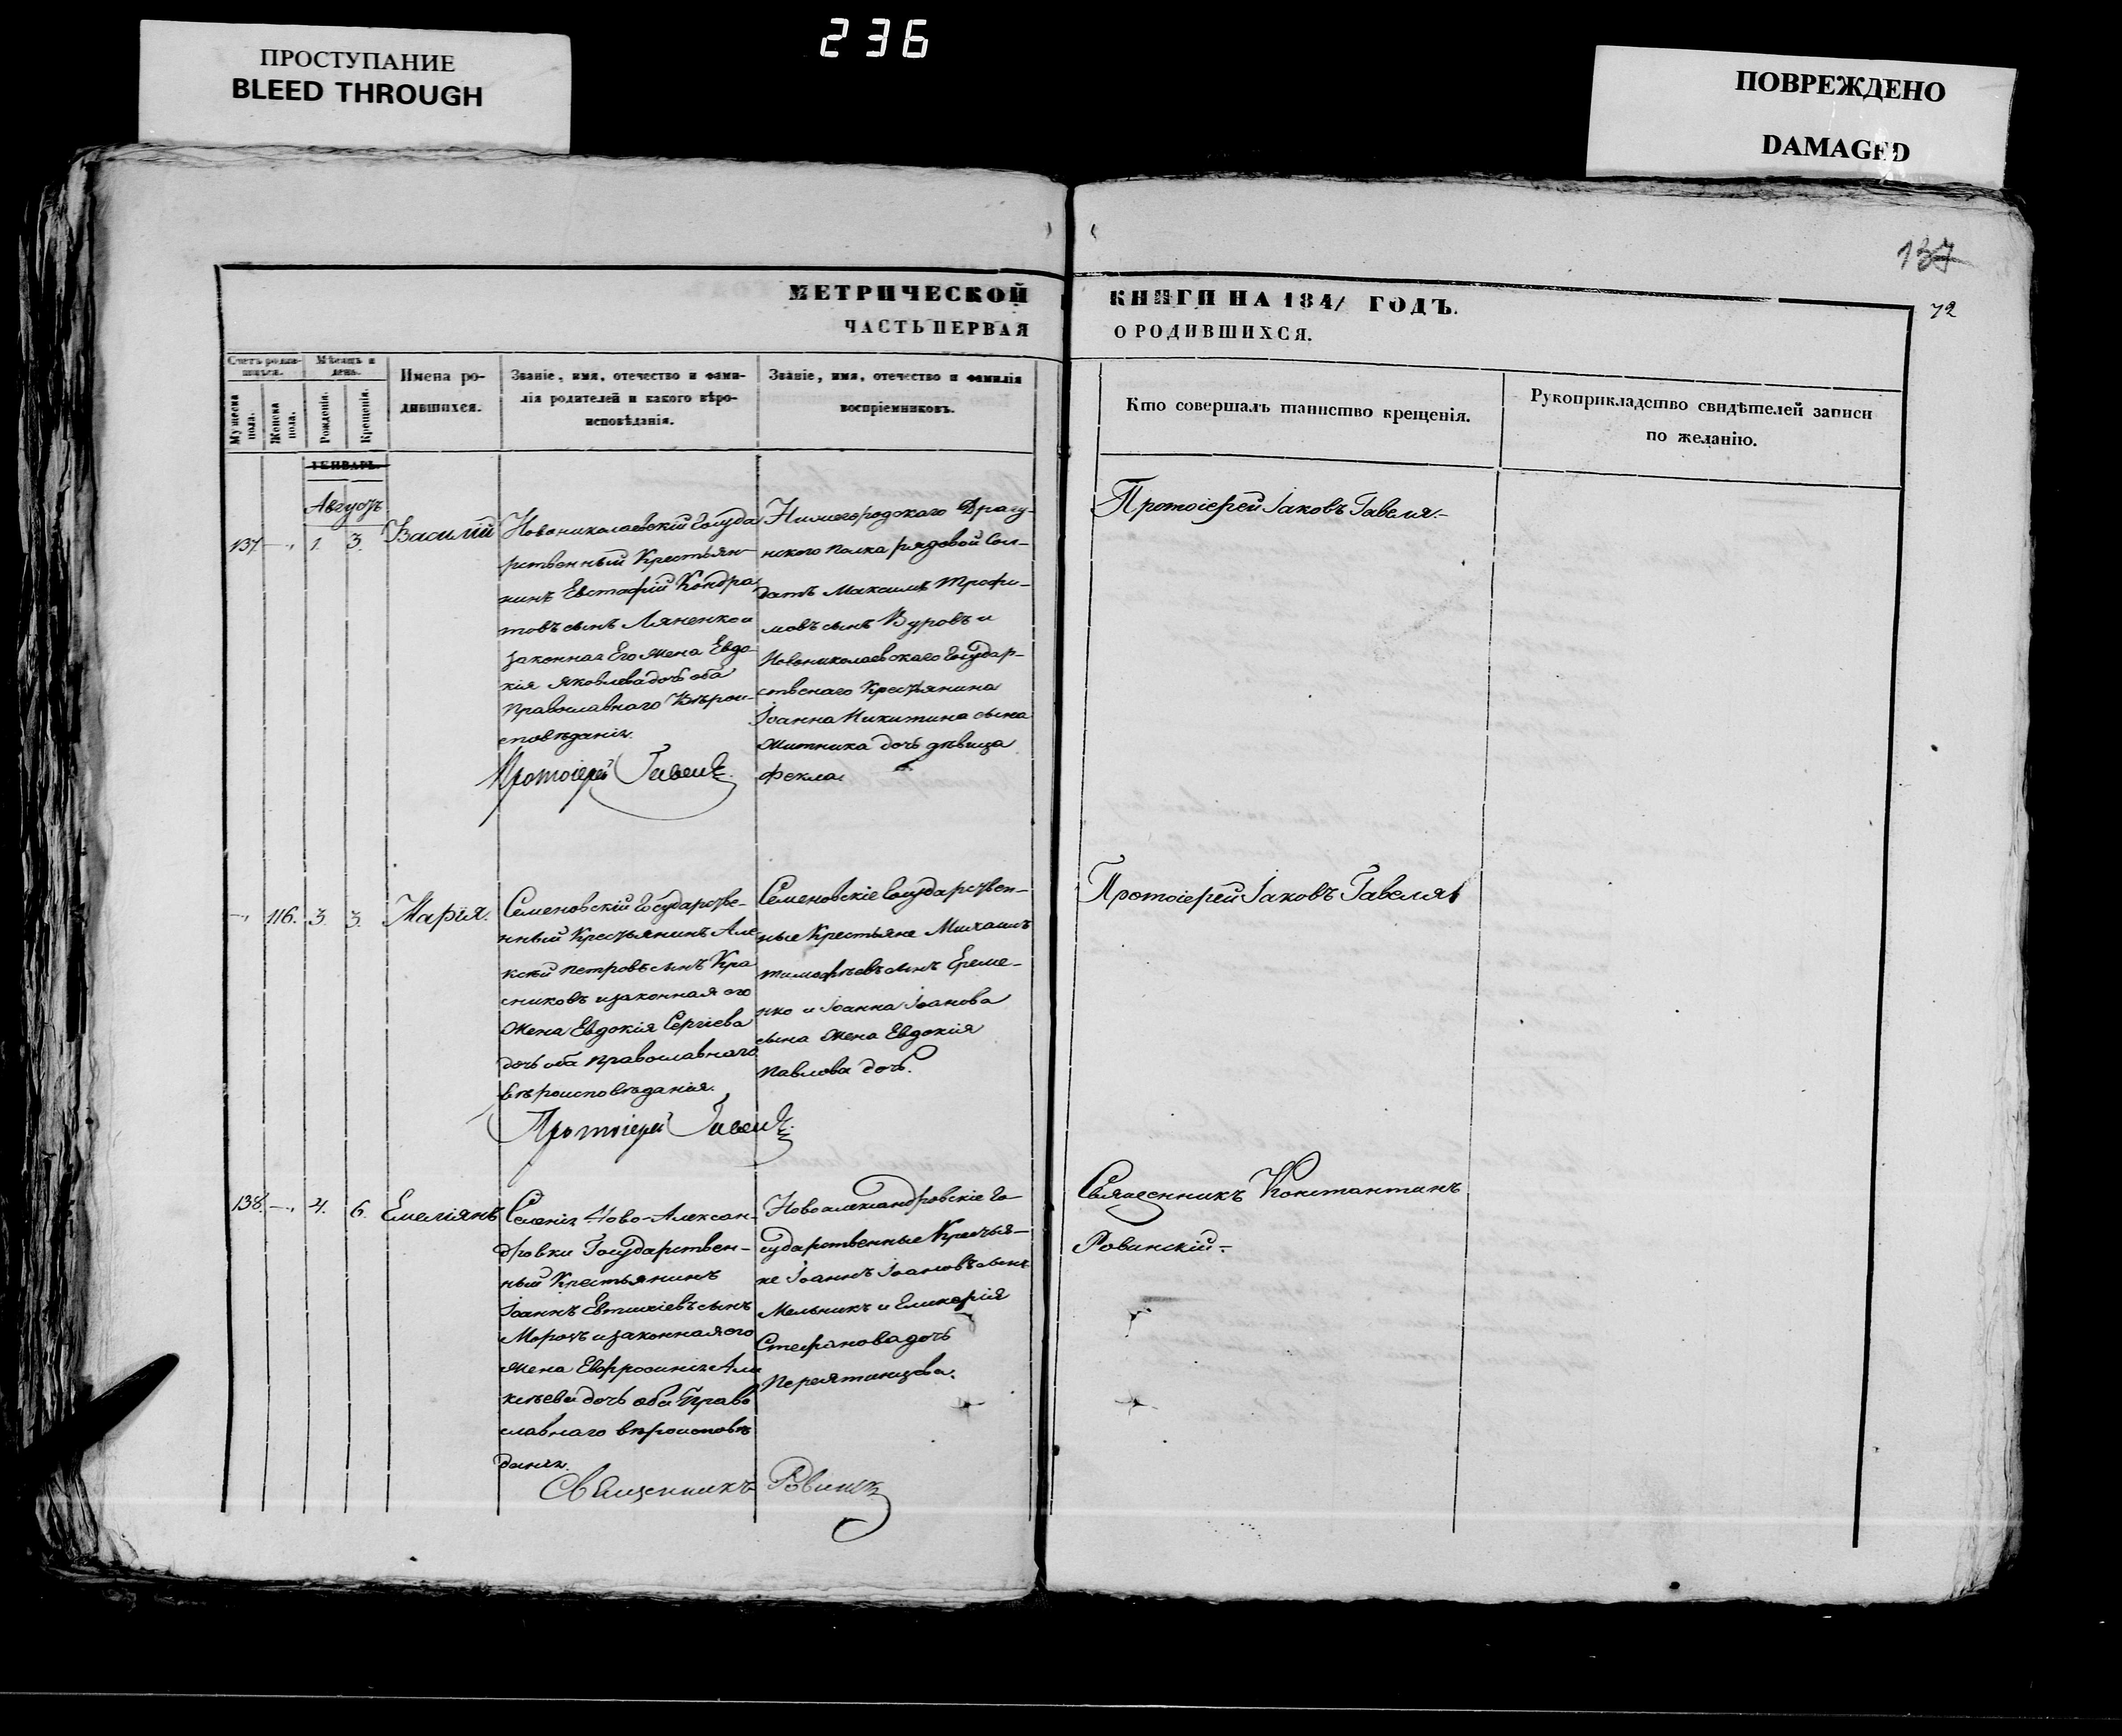 236
ПРОСТУПАНИЕ
BLEED THROUGH
ПОВРЕЖДЕНО
DAMAGED
137
72
МЕТРИЧЕСКОЙ
ЧАСТЬ ПЕРВАЯ
КНИГИ НА 1841 ГОДЪ.
О РОДИВШИХСЯ.
Счетъ родив-
шихся.
Мужеска
пола.
Женска
пола.
Мѣсяцъ и
день.
Рожденія.
Крещенія.
Имена ро-
дившихся.
Званіе, имя, отечество и фами-
лія родителей и какого вѣро-
исповѣданія.
Званіе, имя, отечество и фамилія
воспріемниковъ.
Кто совершалъ таинство крещенія.
Рукоприкладство свидѣтелей записи
по желанію.
ГЕНВАРЬ.
Августъ
137. 1. 3. Василій
Новониколаевскій Госуда
рственный Крестьян-
инъ Евстафій Кондра
товъ сынъ Ляненко и
законная Его жена Евдо-
кія Яковлева дочь оба
Православнаго Вѣрои-
сповѣданія.
Протоіерей Гавеля.
Нижегородскаго Драгу-
нского полка рядовой Сол-
датъ Максимъ Трофи-
мовъ сынъ Вуровъ и
Новониколаевскаго Государ-
ственаго Крестьянина
Іоанна Никитина сына
Житника дочь дѣвица
Фекла.
Протоіерей Іаковъ Гавеля.
116. 3. 3. Марія.
Семеновскій Государстве-
нный Крестьянинъ Але
ксѣй Петровъ сынъ Кра
сниковъ и законная его
жена Евдокія Сергіева
дочь оба православнаго
вѣроисповѣданія.
Протоіерей Гавеля.
Семеновскіе Государствен-
ные Крестьяне Михаилъ
Тимофѣевъ сынъ Ереме-
нко и Іоанна Іоанова
сына жена Евдокія
Павлова дочь.
Протоіерей Іаковъ Гавеля
138. 4. 6. Емеліянъ
Селенія Ново-Алексан-
дровки Государствен-
ный Крестьянинъ
Іоаннъ Евтихіевъ сынъ
Морозъ и законная его
жена Евфросинія Але
ксѣева дочь оба Право
славнаго вѣроисповѣ
данія.
Священникъ Ровинскі
Новоалександровскіе Го-
сударственные Крестья-
не Іоаннъ Іоановъ сынъ
Мельникъ и Гликерія
Стефанова дочь
Священникъ Константинъ
Ровинскій.